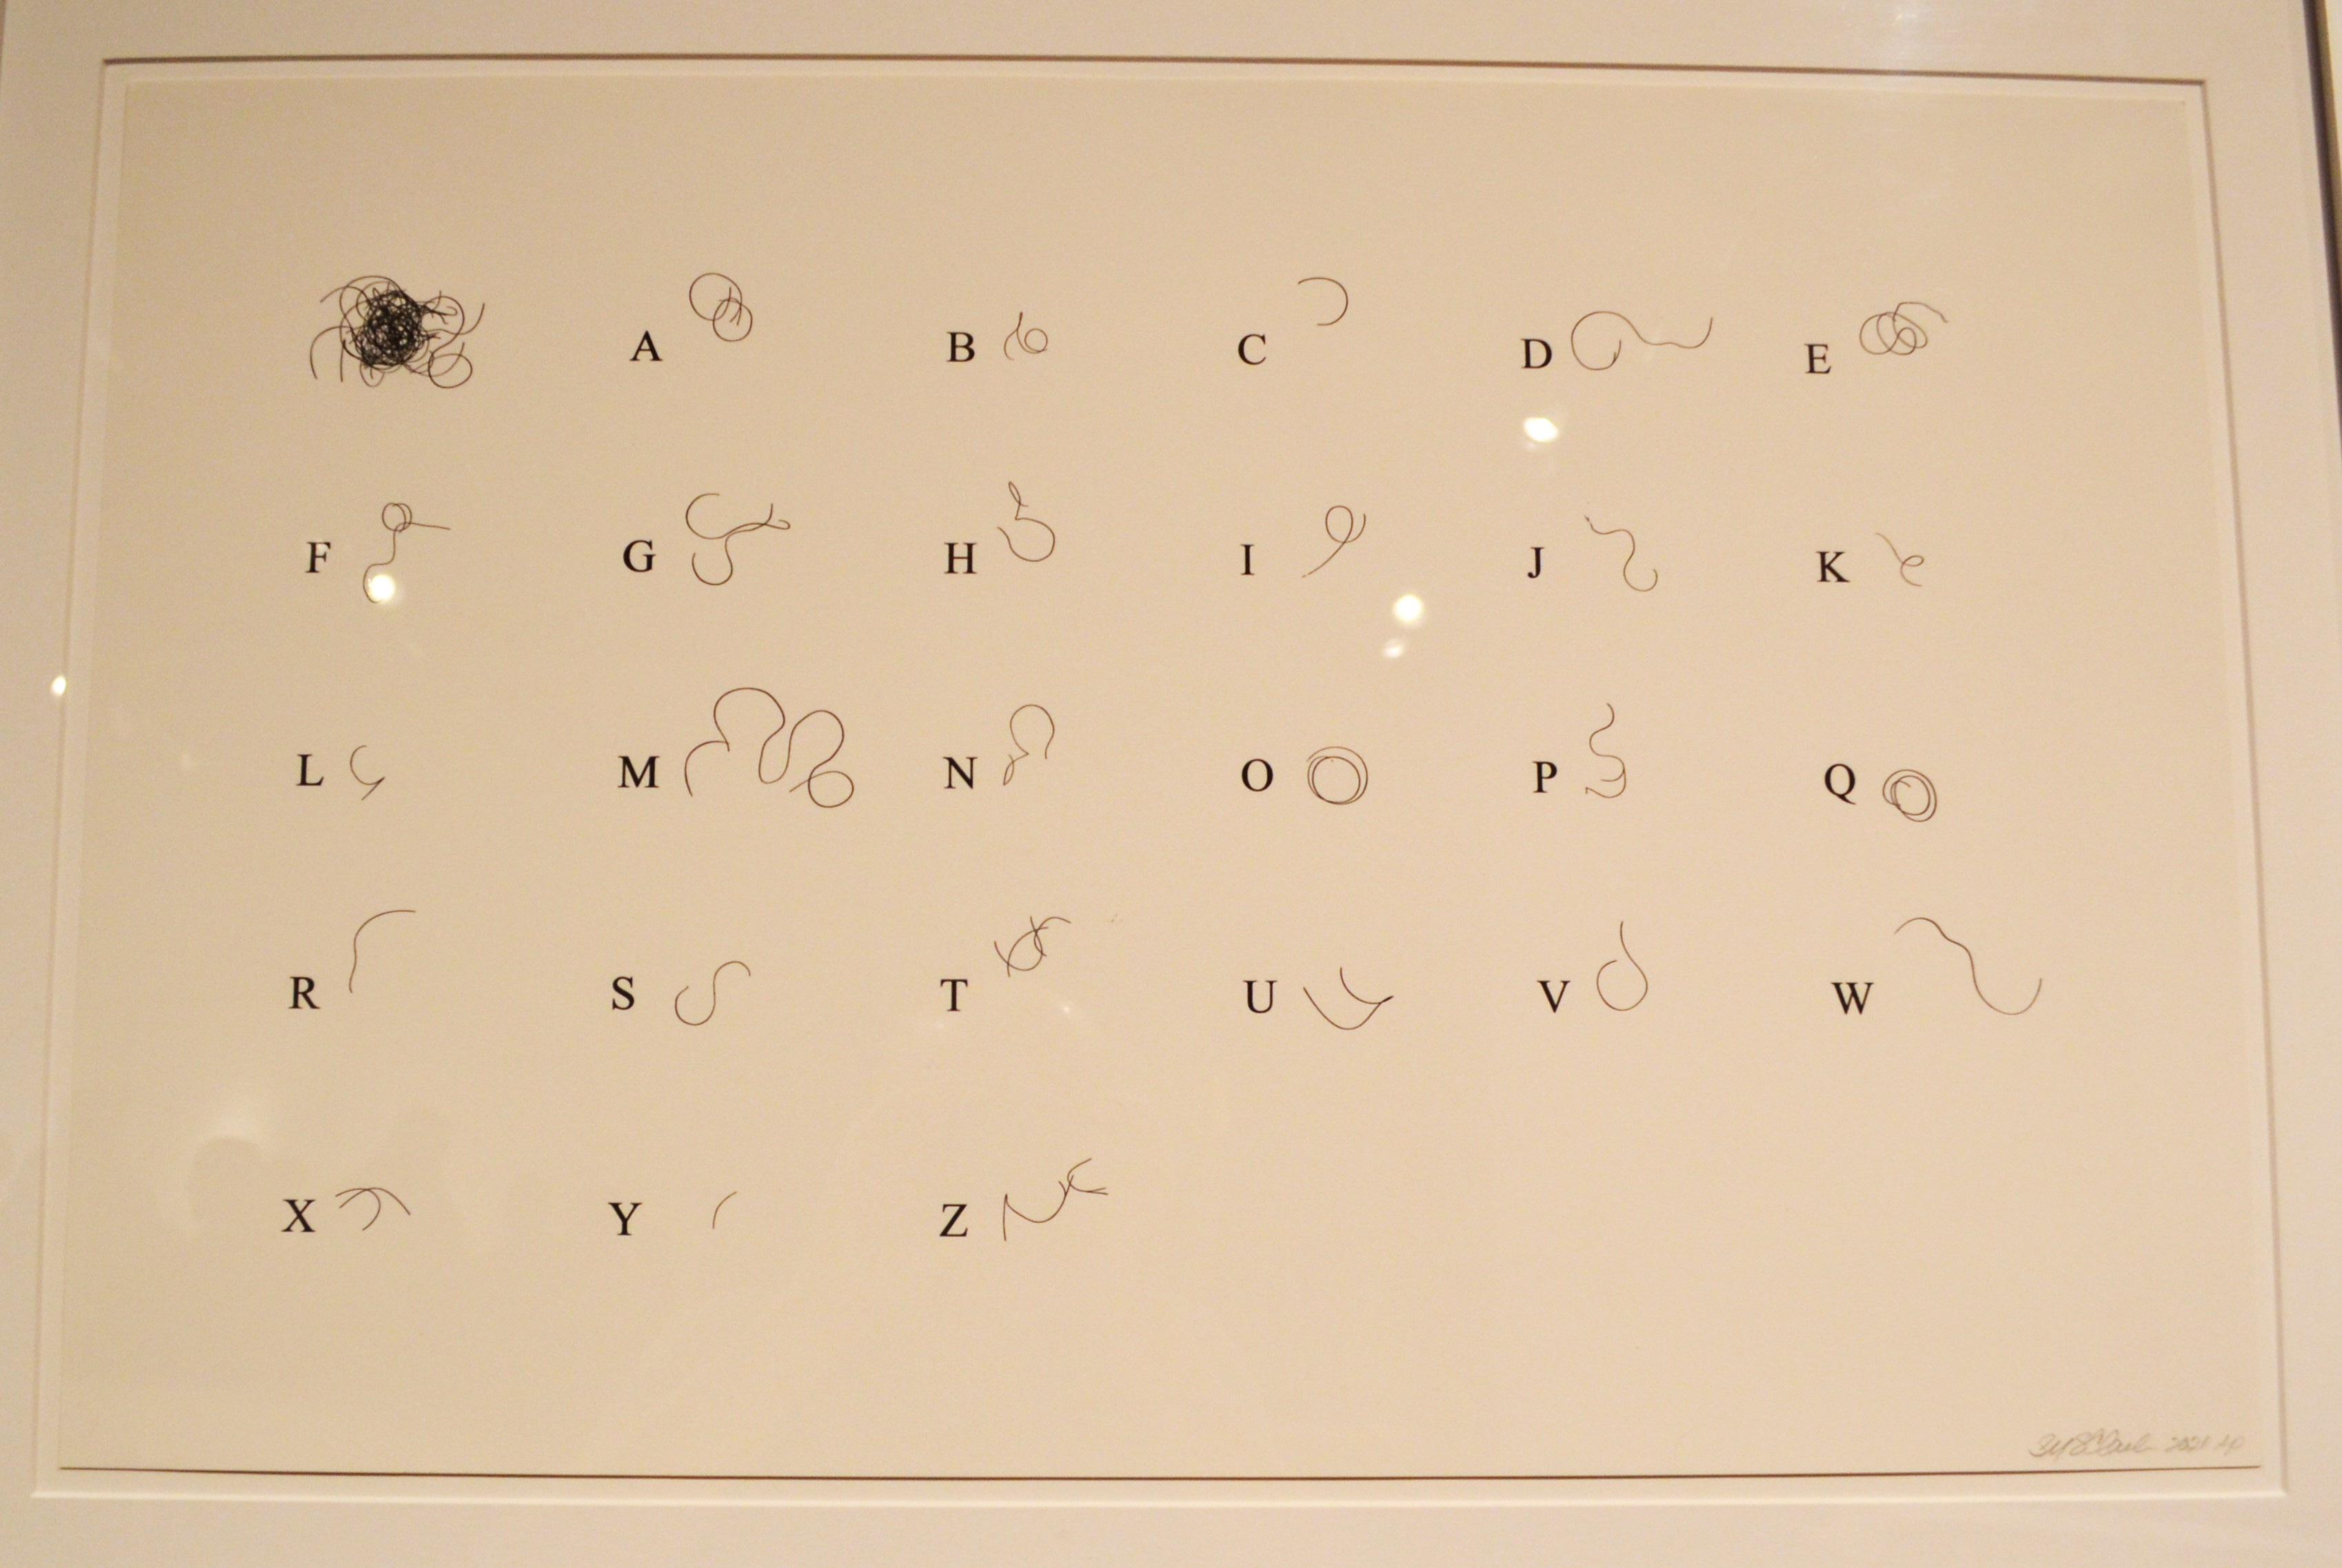 A B C D E
F G H I J K
L M N O P Q
R S T U V W
X Y Z
2021